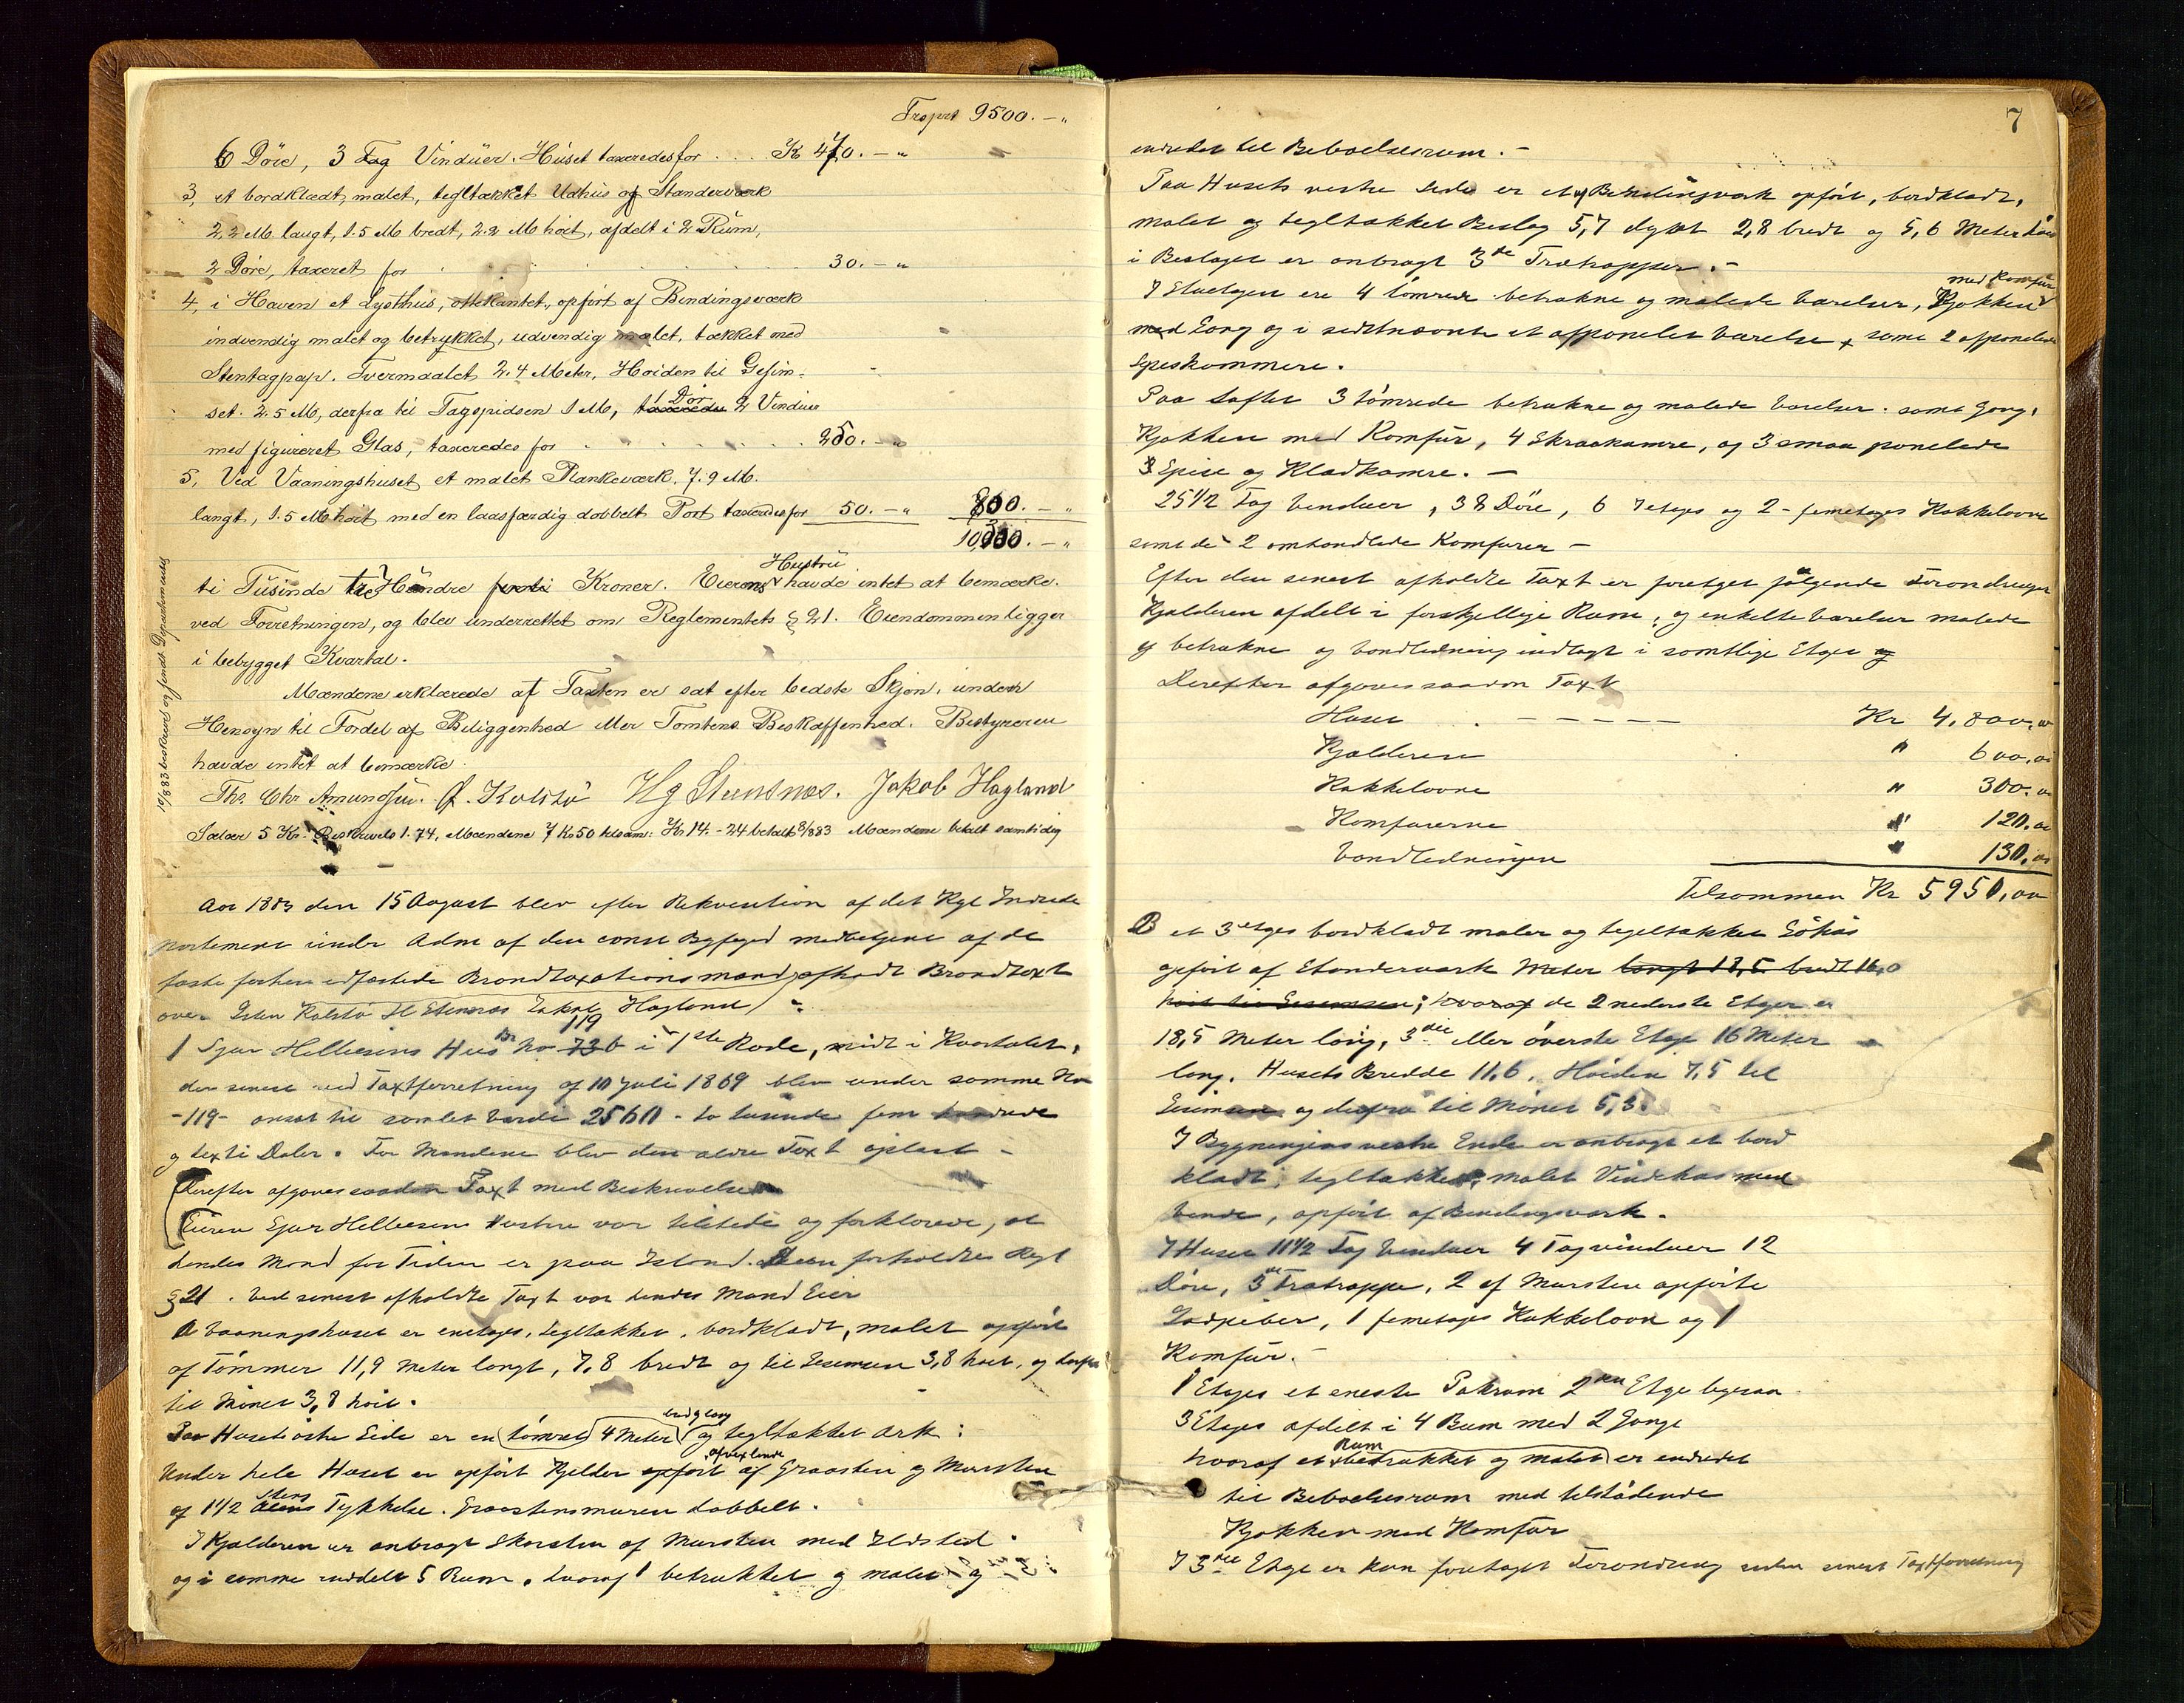 Trsprt 9500.-"
6 Döre, 3 Fag Vinduer. Huset taxeredes for ... Kr 470.-"
3, et bordklædt, malet, tegltækket Udhus af Standerværk
2,2 M. langt, 1.5 M bredt, 2.2 M höit, afdelt i 2 Rum,
2 Döre, taxeret for 30.-"
4, i Haven et Lysthus, ottekantet, opfört af Bindingsværk
indvendig malet og betrykket, udvendig malet, tækket med
Stentagpap. Tvermaalet 2.4 Meter, Höiden til Gesim-
set. 2.5 M, derfra til Tagspidsen 1 M, taxeredes Dör 2 Vinduer
med figureret Glas, taxeredes for 250.-"
5, Ved Vaaningshuset et malet Plankeværk. 7.9 M.
langt, 1.5 M höit med en laasfærdig dobbelt Port taxeredes for 50.-" 800.-"
10300.-"
ti Tusinde tre Hundre Kroner. Eierens Hustru havde intet at bemærke
ved Forretningen, og blev underrettet om Reglementets § 21. Eiendommen ligger
i bebygget Kvartal.
Mændene erklærede at Taxten er sat efter bedste Skjön, uden
Hensyn til Fordel af Beliggenhed eller Tomtens Beskaffenhed. Bestyreren
havde intet at bemærke.
Ths. Chr Amundsen. Ø. Kolstö Hg Steensnæs. Jakob Hagland
Salær 5 Kr. Beskrivels 1.74, Mændene 7 Kr 50 tilsam: Kr 14.-24 betalt 8/883 Mændene betalt samtidig
10/883 beskrevet og sendt Departementet
Aar 1883 den 15 August blev efter Rekvisition af det Kgl Indrede
partement under Adm af den const Byfoged medbetjent af de
faste forhen edfæstede Brandtaxationsmænd afholdt Brandtaxt
over Østen Kolstö H Stensnæs Jakob Hagland /
1 Sjur Hellesens Hus No 73 b 119 i 1ste Rode, midt i Kvartalet,
der senest ved Taxtforretning af 10 Juli 1869 blev under samme No
-119- ansat til samlet Værdi 2560 - to tusinde fem hundrede
og sexti Daler. For Mændene blev den ældre Taxt oplæst -
Derefter afgaves saadan Taxt med Beskrivelse
Eieren Sjur Hellesens Hustru var tilstede og forklarede, at
hendes Mand for Tiden er paa Island. Hun forholdtes Regl
§ 21. Ved senest afholdte Taxt var hendes Mand Eier
A Vaaningshuset er enetages, tegltækket, bordklædt, malet opfört
af Tömmer 11,9 Meter langt, 7,8 bredt og til Gesimsen 3,8 höit, og derfra
til Mönet 3,8 höit.
Paa Husets östre Side er en tömret 4 Meter bred g lang og tegltækket Ark:
Under hele Huset er opfört Kjelder opfört afvexlende af Graasten og Mursten
af 1 1/2 Stens Tykkelse. Graastensmuren dobbelt.
I Kjælderen er anbragt Skorsten af Mursten med Ildsted.
og i samme inddelt 5 Rum, hvoraf 1 betrukket og malet og
7
indredet til Beboelsesrum. -
Paa Husets vestre Side er et af Bindingsværk opfört, bordklædt,
malet og tegltækket Beslag 5,7 dybt 2,8 bredt og 5,6 Meter höit
i Beslaget er anbragt 3de Trætrapper. -
I Stuetagen ere 4 tömrede betrukne og malede Værelser, Kjökken med Komfur
med Gang og i sidstnævnte et afpanelet Værelse, samt 2 afpanelede
Spiskammere.
Paa Loftet 3 tömrede betrukne og malede Værelser. samt Gang,
Kjøkken med Komfur, 4 Skraakamre, og 3 smaa panelede
Spise og Klædkamre. -
25 1/2 Fag Venduer, 38 Döre, 6 1 etages og 2-femetages Kakkelovne
samt de 2 omhandlede Komfurer -
Efter den senest afholdte Taxt er foretaget fölgende Forandringer
Kjælderen afdelt i forskjellige Rum, og enkelte Værelser malede
og betrukne og Vandledning indlagt i samtlige Etager og
Derefter afgaves saadan Taxt
Huset - - - - - Kr 4,800,00
Kjælderen " 600,00
Kakkelovne " 300,00
Komfurerne " 120,00
Vandledningen " 130,00
Tilsammen Kr 5950,00
B et 3 etages bordklædt malet og tegeltækket Söhus
opfört af Standerværk Meter langt 18,5 bredt 16,0
höit til Gesimsen; hvoraf de 2 nederste Etager er
18,5 Meter lang, 3die eller överste Etage 16 Meter
lang. Husets Bredde 11,6. Höiden 7,5 til
Gesimsen og derfra til Mönet 5,3.
I Bygningens vestre Ende er anbragt et bord
klædt, tegltækket, malet Vindehus med
Vinde, opfört af Bindingsværk.
I Huset 11 1/2 Fag Venduer 4 Tagvinduer 12
Döre, 3de Trætrappe, 2 af Mursten opförte
Ladpiber, 1 femetages Kakkelovn og 1
Komfur. -
1 Etages et eneste Pakrum 2den Etage ligesaa
3 Etages afdelt i 4 Rum med 2 Gange
hvoraf et Rum betrukket og malet er indredet
til Beboelsesrum med tilstödende
Kjøkken med Komfur
I 3die Etage er kun foretaget Forandring siden senest Taxtforretning